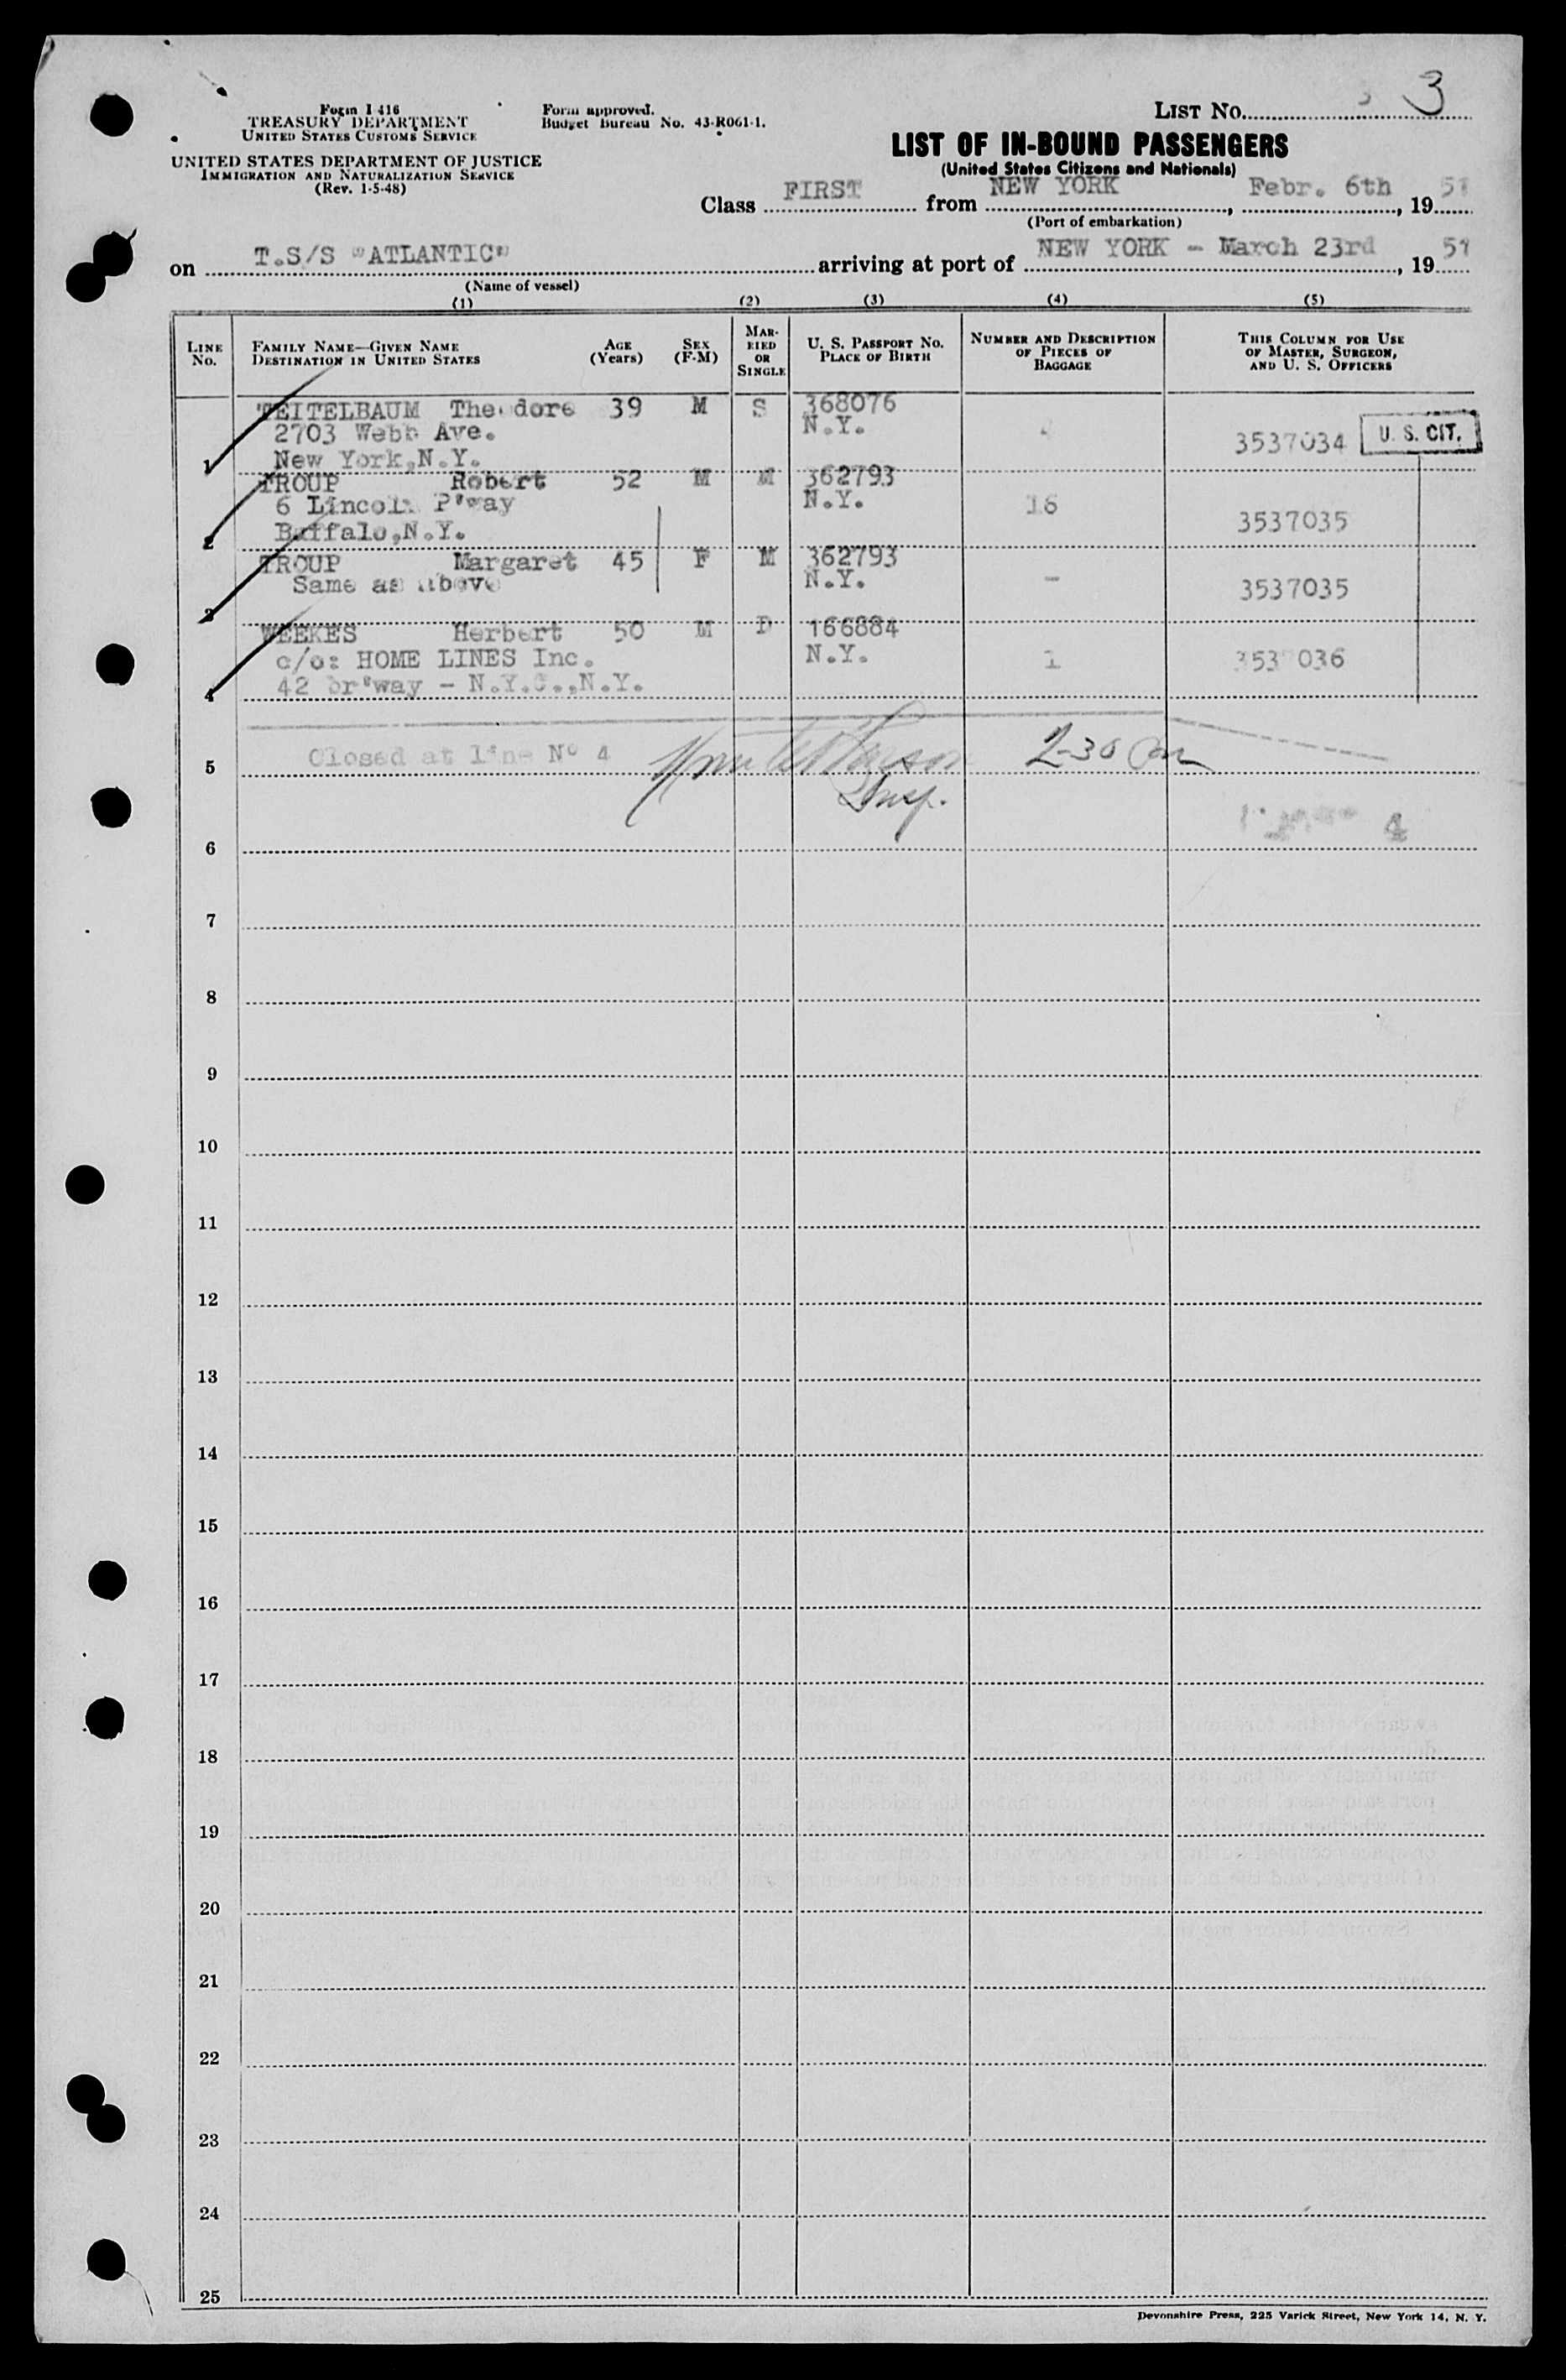 Form I 416
TREASURY DEPARTMENT
UNITED STATES CUSTOMS SERVICE
UNITED STATES DEPARTMENT OF JUSTICE
IMMIGRATION AND NATURALIZATION SERVICE
(Rev. 1-5-48)
Form approved.
Budget Bureau No. 43-R061-1.
LIST No. 3
LIST OF IN-BOUND PASSENGERS
(United States Citizens and Nationals)
Class FIRST from NEW YORK, Febr. 6th, 1951
(Port of embarkation)
on T.S/S "ATLANTIC" arriving at port of NEW YORK - March 23rd, 1951
(Name of vessel)
(1) (2) (3) (4) (5)
LINE No.
FAMILY NAME—GIVEN NAME
DESTINATION IN UNITED STATES
AGE (Years)
SEX (F-M)
MARRIED OR SINGLE
U. S. PASSPORT No.
PLACE OF BIRTH
NUMBER AND DESCRIPTION OF PIECES OF BAGGAGE
THIS COLUMN FOR USE OF MASTER, SURGEON, AND U. S. OFFICERS
TEITELBAUM Theodore 39 M S 368076
2703 Webb Ave. N.Y. 3537034 U. S. CIT.
1 New York,N.Y.
TROUP Robert 52 M M 362793
6 Lincoln P'way N.Y. 16 3537035
2 Buffalo,N.Y.
TROUP Margaret 45 F M 362793
Same as above N.Y. - 3537035
3
WEEKES Herbert 50 M D 166884
c/o: HOME LINES Inc. N.Y. 1 3537036
4 42 br'way - N.Y.C.,N.Y.
5 Closed at line Nº 4 2-30 Pm
Insp.
4
6
7
8
9
10
11
12
13
14
15
16
17
18
19
20
21
22
23
24
25
Devonshire Press, 225 Varick Street, New York 14, N. Y.